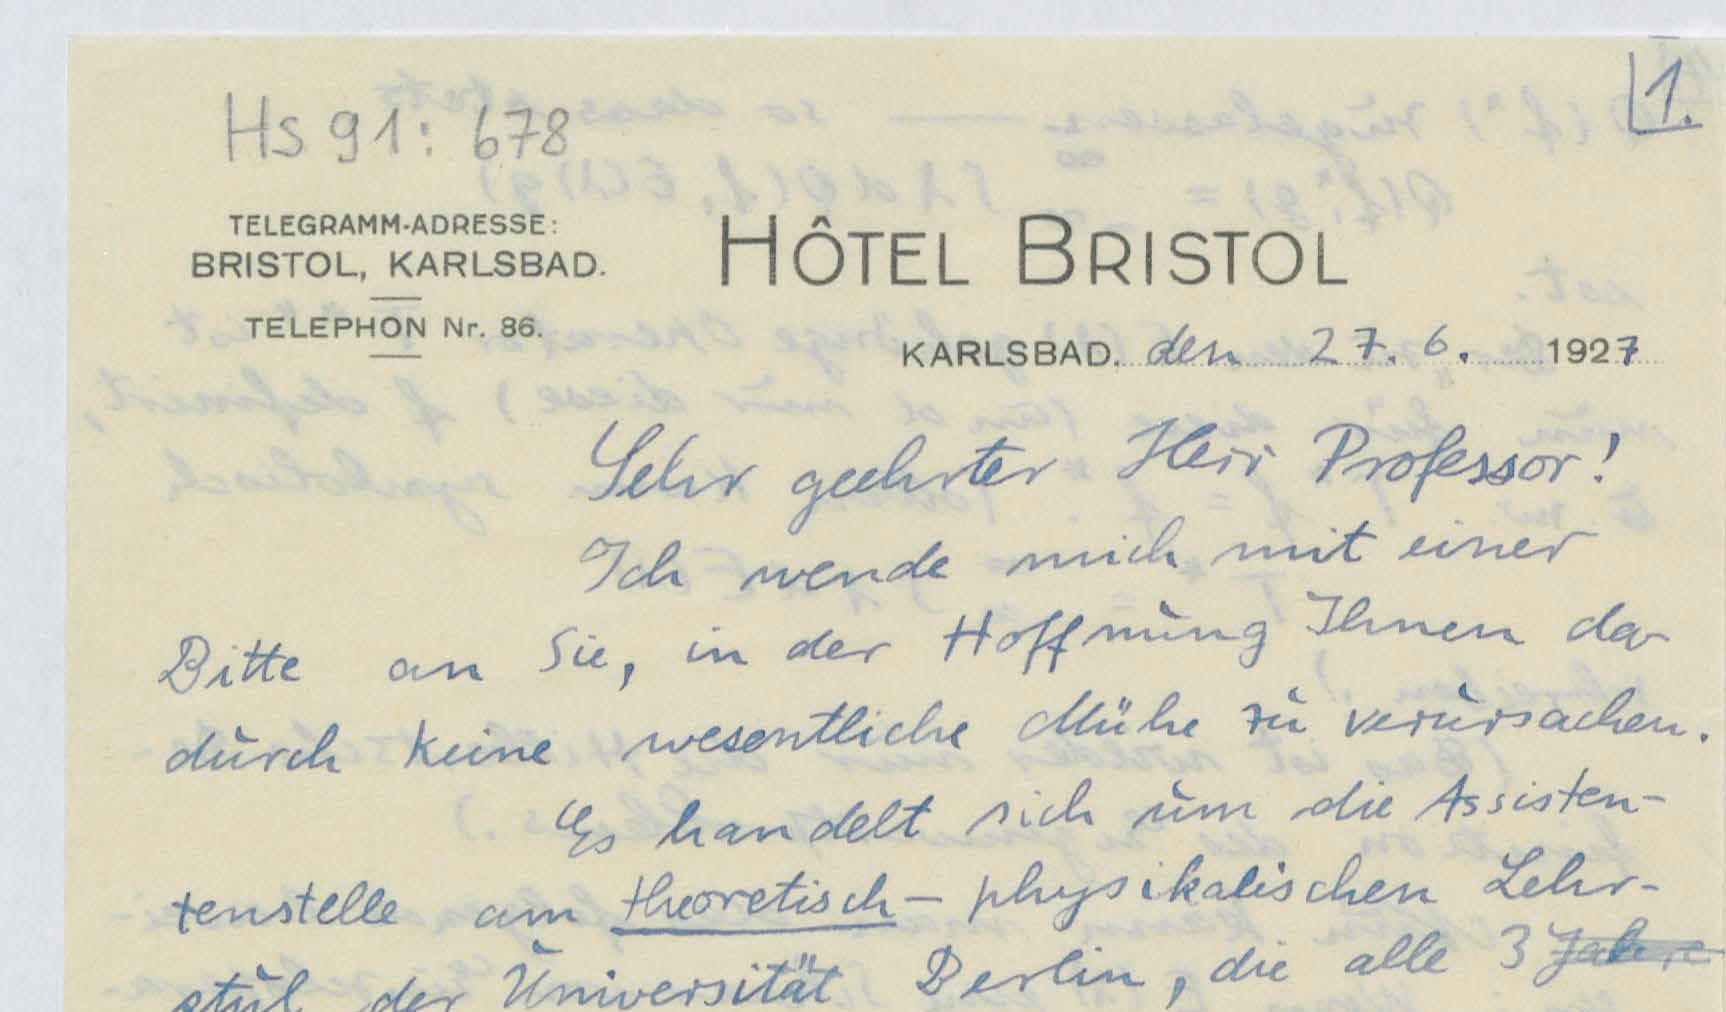 1.
Hs 91: 678
TELEGRAMM-ADRESSE:
BRISTOL, KARLSBAD.
TELEPHON Nr. 86.
HÔTEL BRISTOL
KARLSBAD. den 27. 6. 1927
Sehr geehrter Herr Professor!
Ich wende mich mit einer
Bitte an Sie, in der Hoffnung Ihnen da-
durch keine wesentliche Mühe zu verursachen.
Es handelt sich um die Assisten-
tenstelle am theoretisch- physikalischen Lehr-
stul der Universität Berlin, die alle 3 Jahre